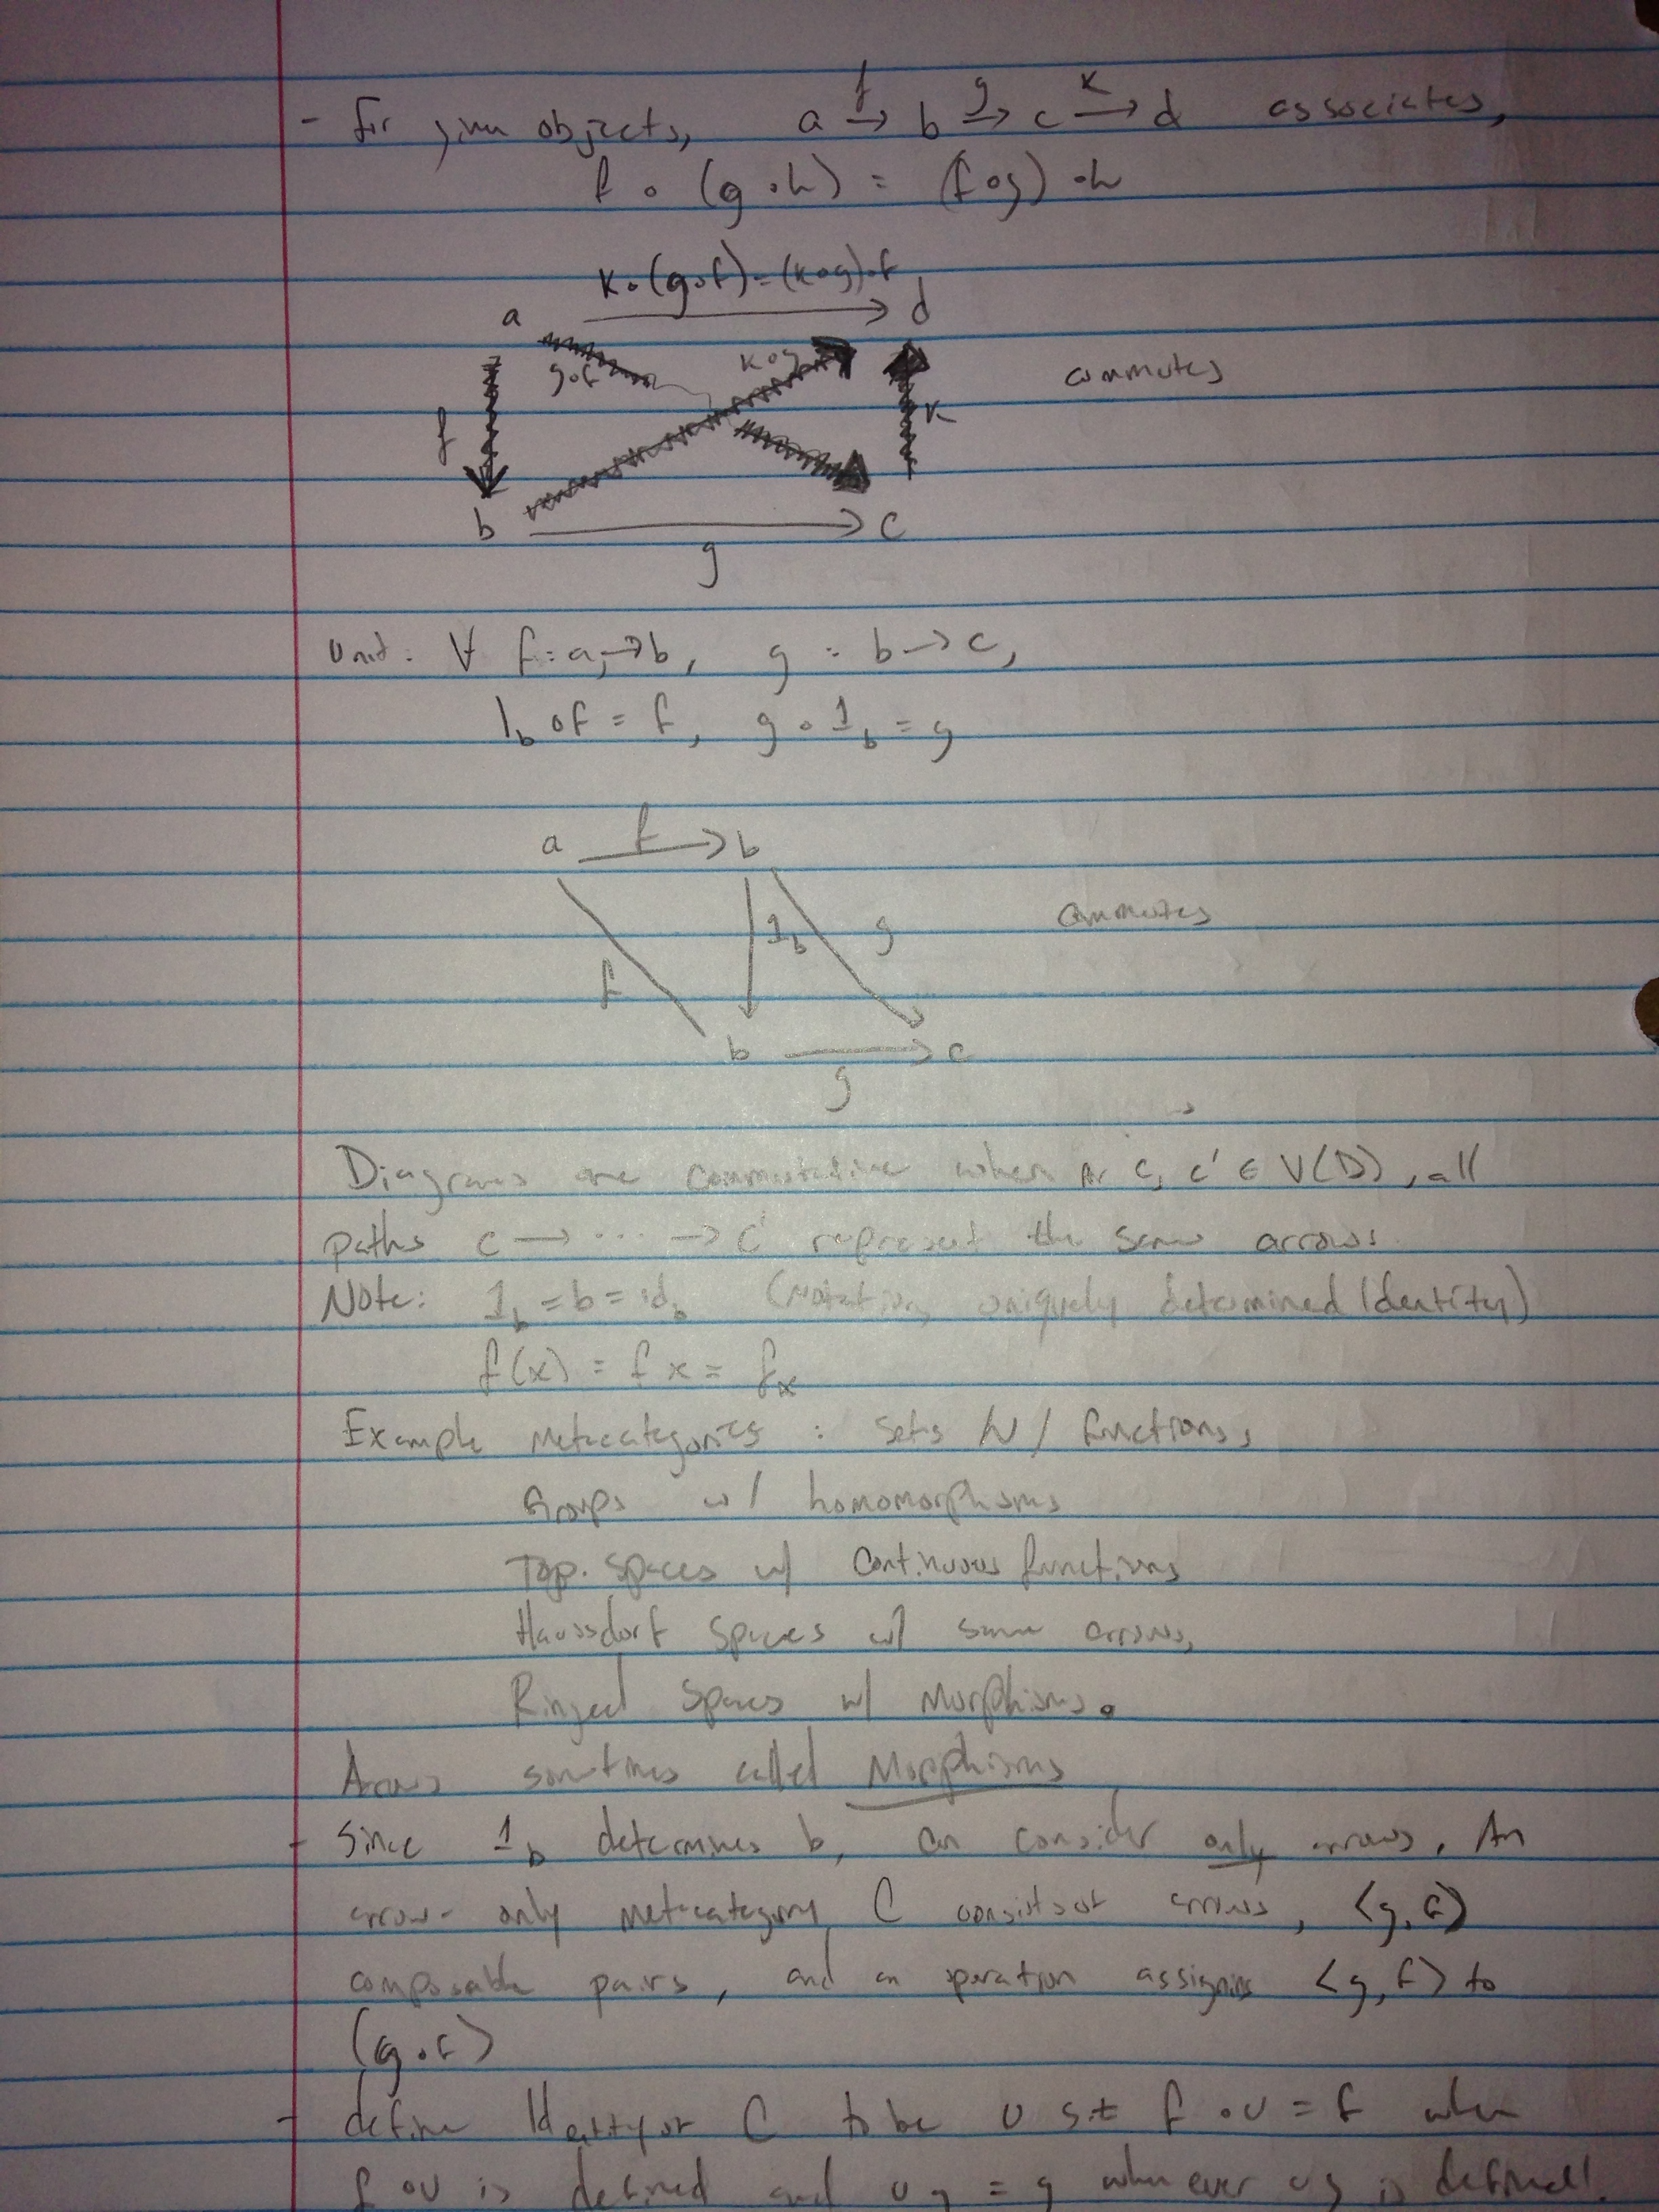 - For given objects, a f→ b g→ c k→ d associates,
f ∘ (g ∘ h) = (f ∘ g) ∘ h
k ∘ (g ∘ f) = (k ∘ g) ∘ f
a d
g∘f k∘g commutes
f k
b c
g
Unit: ∀ f: a → b, g : b → c,
1_b ∘ f = f, g ∘ 1_b = g
a f→ b
1_b g commutes
f
b → c
g
Diagrams are commutative when for c, c' ∈ V(D), all
paths c → ... → c' represent the same arrows.
Note: 1_b = b = id_b (Notation, uniquely determined Identity)
f(x) = f x = f_x
Example Metacategories : Sets w/ functions,
Groups w/ homomorphisms
Top. Spaces w/ Continuous functions
Haussdorf Spaces w/ same arrows,
Ringed Spaces w/ Morphisms.
Arrows sometimes called Morphisms
- Since 1_b determines b, can consider only arrows. An
arrow-only metacategory C consists of arrows, <g, f>
composable pairs, and an operation assigning <g, f> to
(g ∘ f)
- define Identity of C to be u s.t f ∘ u = f when
f ∘ u is defined and u g = g whenever u g is defined.